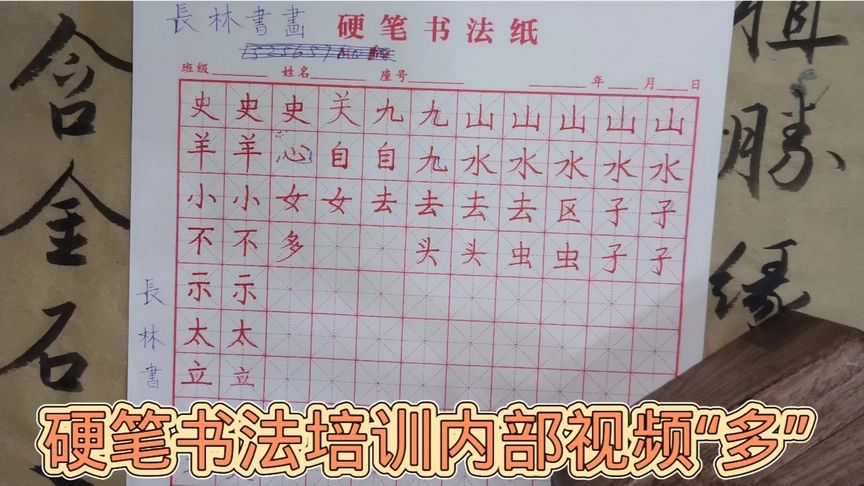 長林書畫
硬笔书法纸
班级 姓名 座号 年 月 日
史史史关九九山山山山山
羊羊心自自九水水水水水
小小女女去去去去区子子
不不多头头虫虫子子
示示
太太
立立
長林書
含金石
值勝緣
硬笔书法培训内部视频“多”